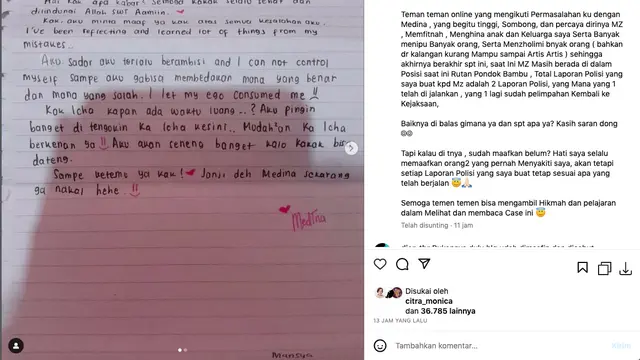 diindungi Allah SWT Aamiin.
Kak, aku minta maaf ya kak atas semua kesalahan aku.
I've been reflecting and learned lot of things from my
mistakes..
Aku sadar aku terlalu berambisi and I can not control
myself sampe aku gabisa membedakan mana yang benar
dan mana yang salah. I let my ego consumed me !!
Kak Icha kapan ada waktu luang..? Aku pingin
banget di tengokin Ka Icha kesini.. Mudah²an Ka Icha
berkenan ya !! Aku akan seneng banget kalo kakak bisa
dateng.
Sampe ketemu ya kak! Janji deh Medina sekarang
ga nakal hehe..!!
Medina
Teman teman online yang mengikuti Permasalahan ku dengan
Medina , yang begitu tinggi, Sombong, dan percaya dirinya MZ
, Memfitnah , Menghina anak dan Keluarga saya Serta Banyak
Menipu Banyak orang, Serta Menzholimi bnyak orang ( bahkan
dr kalangan kurang Mampu sampai Artis Artis ) sehingga
akhirnya berakhir spt ini, saat ini MZ Masih berada di dalam
Posisi saat ini Rutan Pondok Bambu , Total Laporan Polisi yang
saya buat kpd Mz adalah 2 Laporan Polisi, yang Mana yang 1
telah di jalankan , yang 1 lagi sudah pelimpahan Kembali ke
Kejaksaan,
Baiknya di balas gimana ya dan spt apa ya? Kasih saran dong
Tapi kalau di tnya , sudah maafkan belum? Hati saya selalu
memaafkan orang2 yang pernah Menyakiti saya, akan tetapi
setiap Laporan Polisi yang saya buat tetap sesuai apa yang
telah berjalan
Semoga temen temen bisa mengambil Hikmah dan pelajaran
dalam Melihat dan membaca Case ini
Telah disunting · 11 jam
Disukai oleh
citra_monica
dan 36.785 lainnya
13 JAM YANG LALU
Tambahkan komentar...
Kirim